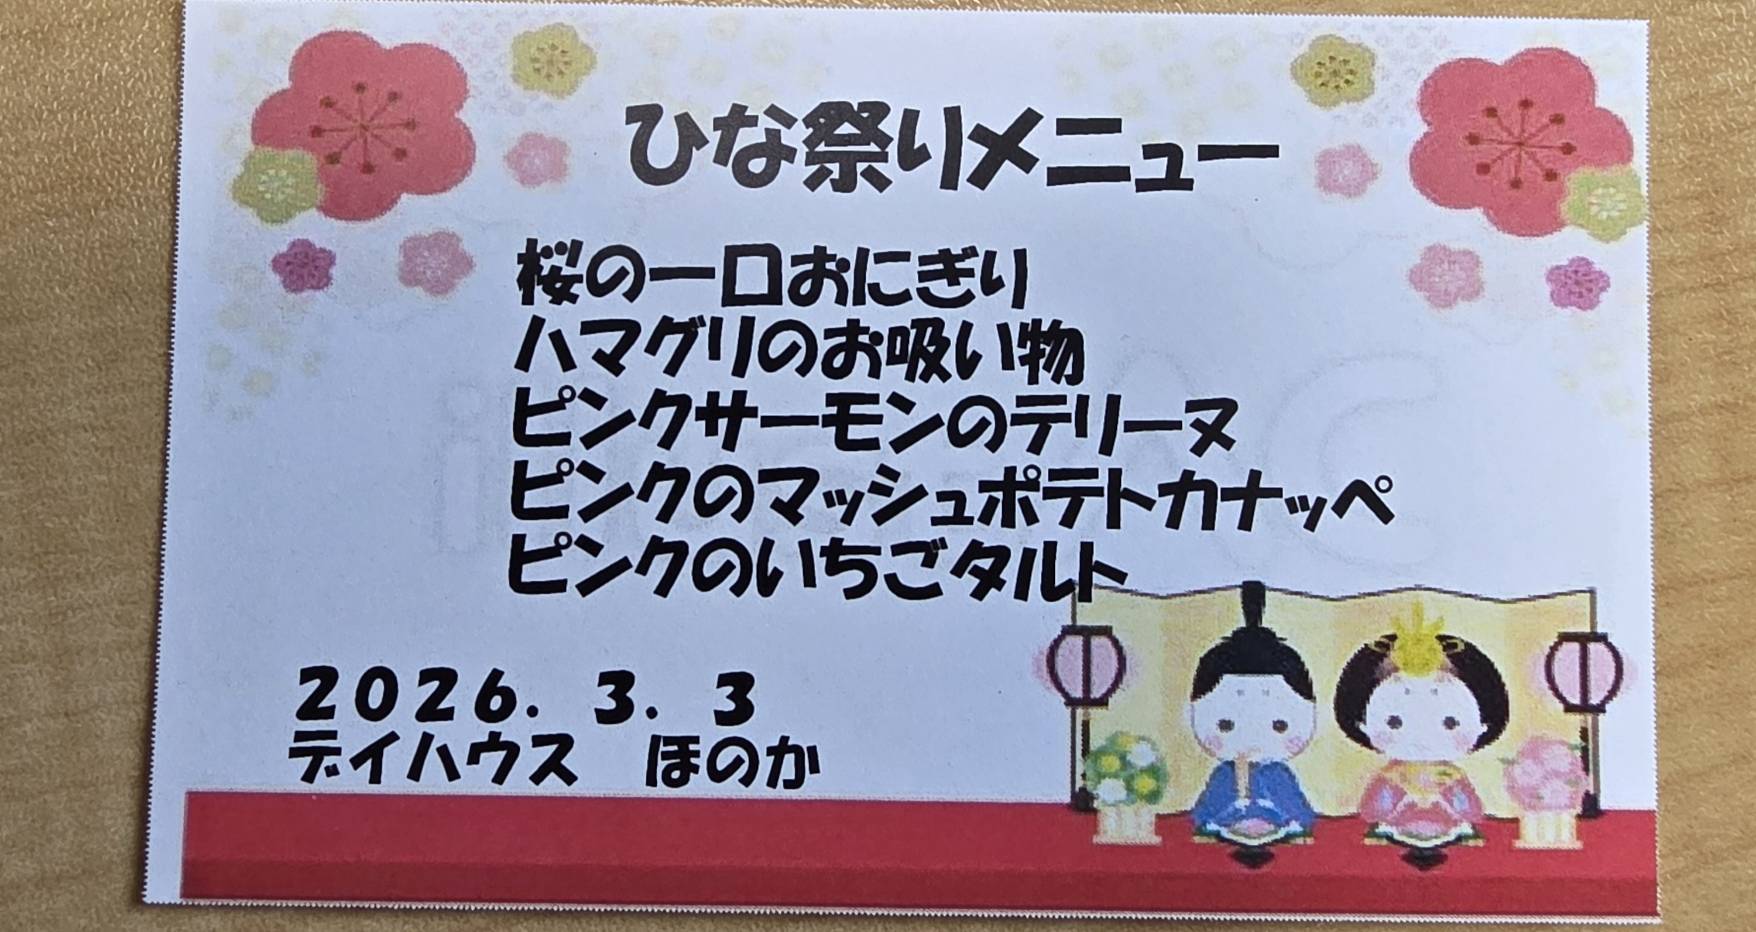 ひな祭りメニュー
桜の一口おにぎり
ハマグリのお吸い物
ピンクサーモンのテリーヌ
ピンクのマッシュポテトカナッペ
ピンクのいちごタルト
２０２６．３．３
デイハウス　ほのか